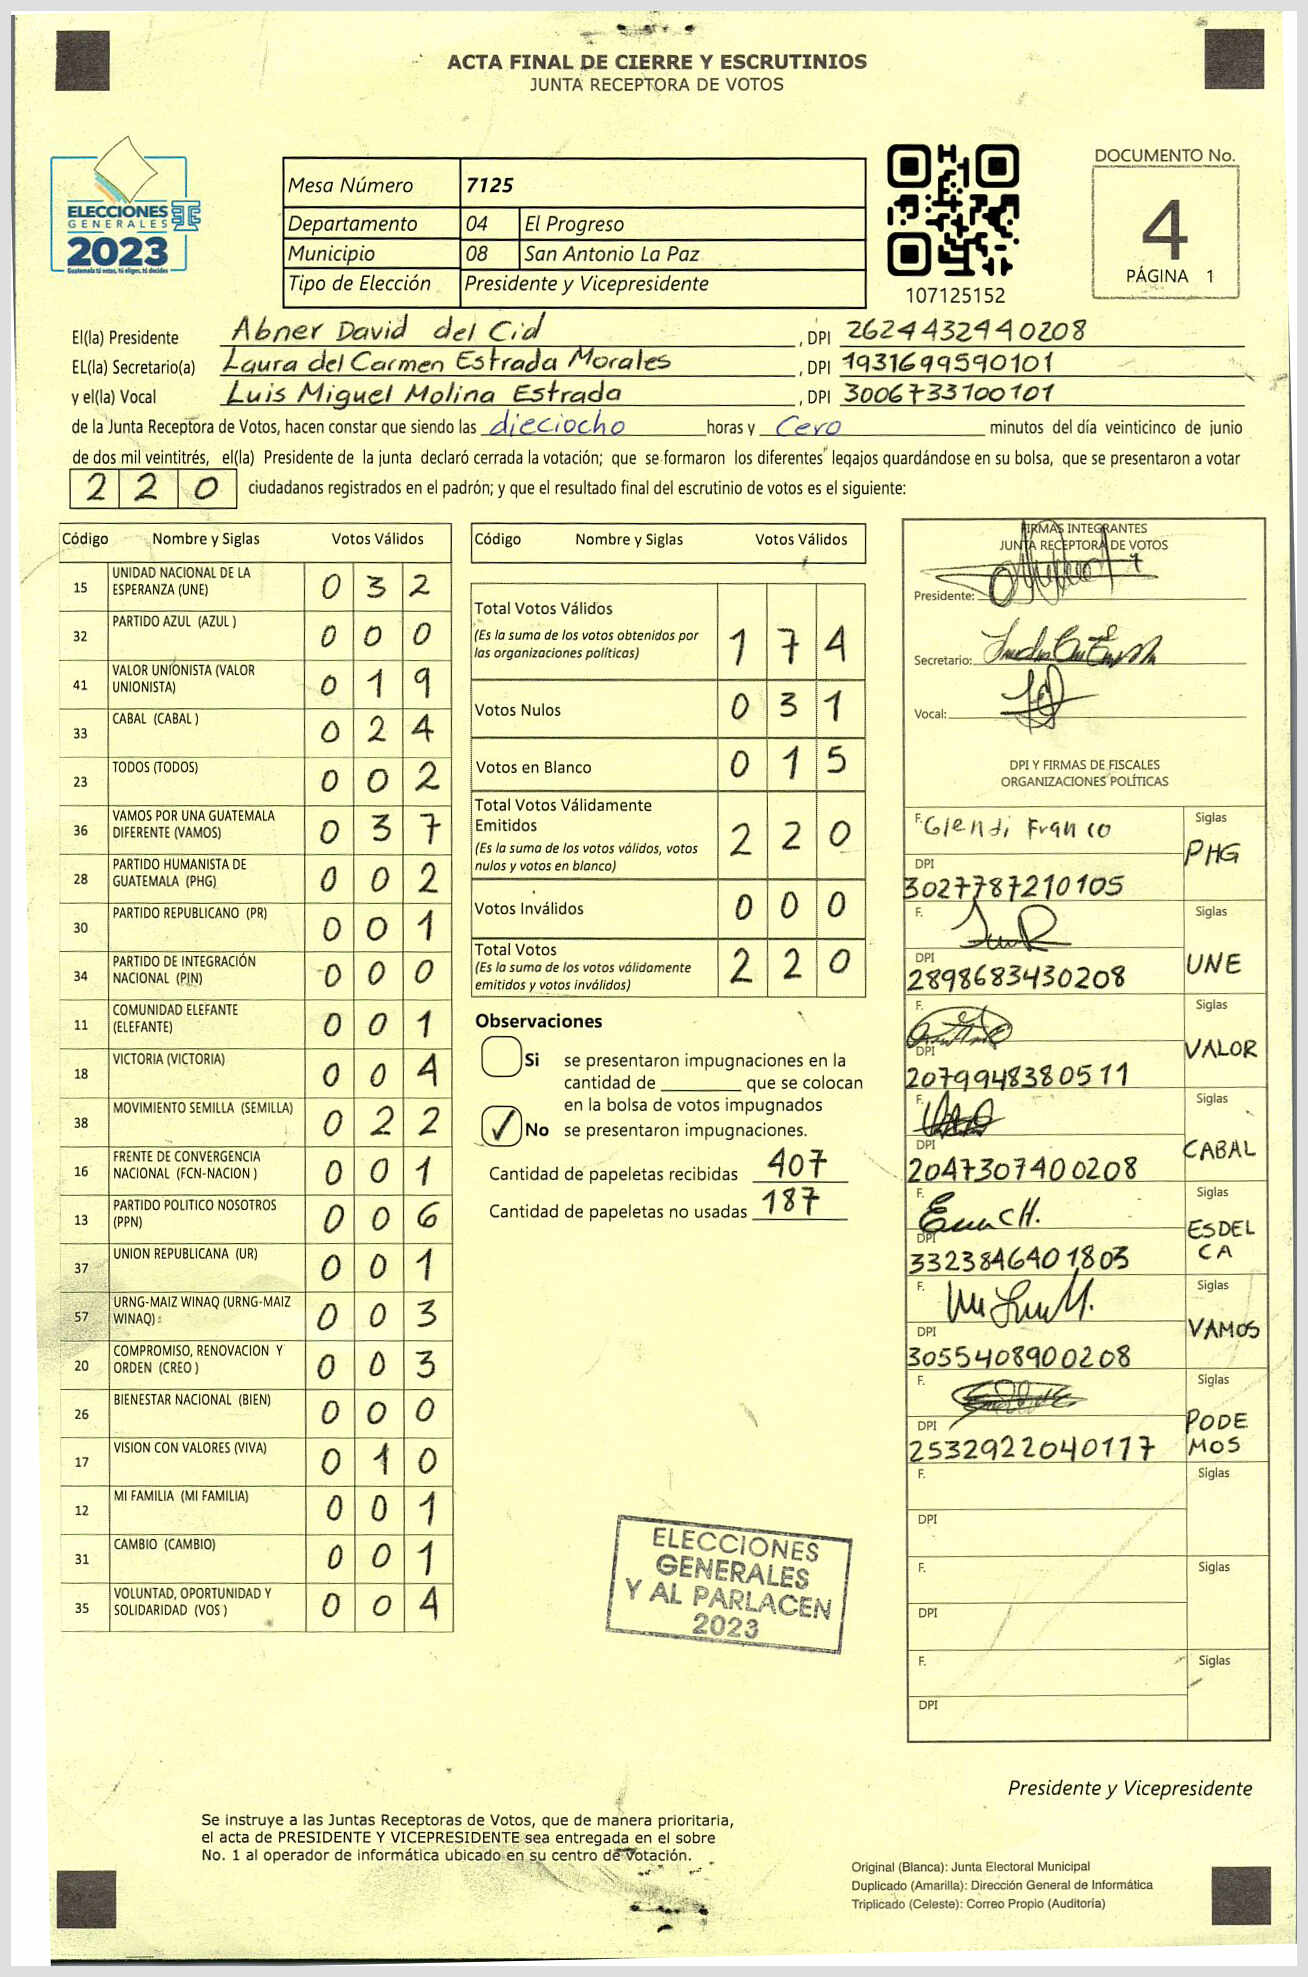 ACTA FINAL DE CIERRE Y ESCRUTINIOS
JUNTA RECEPTORA DE VOTOS
ELECCIONES
GENERALES
2023
Guatemala tú votas, tú eliges, tú decides
Mesa Número 7125
Departamento 04 El Progreso
Municipio 08 San Antonio La Paz
Tipo de Elección Presidente y Vicepresidente
107125152
DOCUMENTO No.
4
PÁGINA 1
El(la) Presidente Abner David del Cid , DPI 2624432440208
EL(la) Secretario(a) Laura del Carmen Estrada Morales , DPI 1931699590101
y el(la) Vocal Luis Miguel Molina Estrada , DPI 3006733100101
de la Junta Receptora de Votos, hacen constar que siendo las dieciocho horas y Cero minutos del día veinticinco de junio
de dos mil veintitrés, el(la) Presidente de la junta declaró cerrada la votación; que se formaron los diferentes legajos guardándose en su bolsa, que se presentaron a votar
220 ciudadanos registrados en el padrón; y que el resultado final del escrutinio de votos es el siguiente:
Código Nombre y Siglas Votos Válidos
15 UNIDAD NACIONAL DE LA ESPERANZA (UNE) 032
32 PARTIDO AZUL (AZUL ) 000
41 VALOR UNIONISTA (VALOR UNIONISTA) 019
33 CABAL (CABAL ) 024
23 TODOS (TODOS) 002
36 VAMOS POR UNA GUATEMALA DIFERENTE (VAMOS) 037
28 PARTIDO HUMANISTA DE GUATEMALA (PHG) 002
30 PARTIDO REPUBLICANO (PR) 001
34 PARTIDO DE INTEGRACIÓN NACIONAL (PIN) 000
11 COMUNIDAD ELEFANTE (ELEFANTE) 001
18 VICTORIA (VICTORIA) 004
38 MOVIMIENTO SEMILLA (SEMILLA) 022
16 FRENTE DE CONVERGENCIA NACIONAL (FCN-NACION ) 001
13 PARTIDO POLITICO NOSOTROS (PPN) 006
37 UNION REPUBLICANA (UR) 001
57 URNG-MAIZ WINAQ (URNG-MAIZ WINAQ) 003
20 COMPROMISO, RENOVACION Y ORDEN (CREO ) 003
26 BIENESTAR NACIONAL (BIEN) 000
17 VISION CON VALORES (VIVA) 010
12 MI FAMILIA (MI FAMILIA) 001
31 CAMBIO (CAMBIO) 001
35 VOLUNTAD, OPORTUNIDAD Y SOLIDARIDAD (VOS ) 004
Código Nombre y Siglas Votos Válidos
Total Votos Válidos
(Es la suma de los votos obtenidos por las organizaciones políticas) 174
Votos Nulos 031
Votos en Blanco 015
Total Votos Válidamente Emitidos
(Es la suma de los votos válidos, votos nulos y votos en blanco) 220
Votos Inválidos 000
Total Votos
(Es la suma de los votos válidamente emitidos y votos inválidos) 220
Observaciones
Si se presentaron impugnaciones en la
cantidad de ________ que se colocan
en la bolsa de votos impugnados
✓ No se presentaron impugnaciones.
Cantidad de papeletas recibidas 407
Cantidad de papeletas no usadas 187
ELECCIONES
GENERALES
Y AL PARLACEN
2023
FIRMAS INTEGRANTES
JUNTA RECEPTORA DE VOTOS
Presidente:
Secretario:
Vocal:
DPI Y FIRMAS DE FISCALES
ORGANIZACIONES POLÍTICAS
F. Glendi Franco Siglas PHG
DPI 3027787210105
F. Siglas UNE
DPI 2898683430208
F. Siglas VALOR
DPI 2079948380511
F. Siglas CABAL
DPI 2047307400208
F. Siglas ESDEL CA
DPI 3323846401803
F. Siglas VAMOS
DPI 3055408900208
F. Siglas PODE MOS
DPI 2532922040117
F. Siglas
DPI
F. Siglas
DPI
F. Siglas
DPI
Presidente y Vicepresidente
Se instruye a las Juntas Receptoras de Votos, que de manera prioritaria,
el acta de PRESIDENTE Y VICEPRESIDENTE sea entregada en el sobre
No. 1 al operador de informática ubicado en su centro de Votación.
Original (Blanca): Junta Electoral Municipal
Duplicado (Amarilla): Dirección General de Informática
Triplicado (Celeste): Correo Propio (Auditoría)